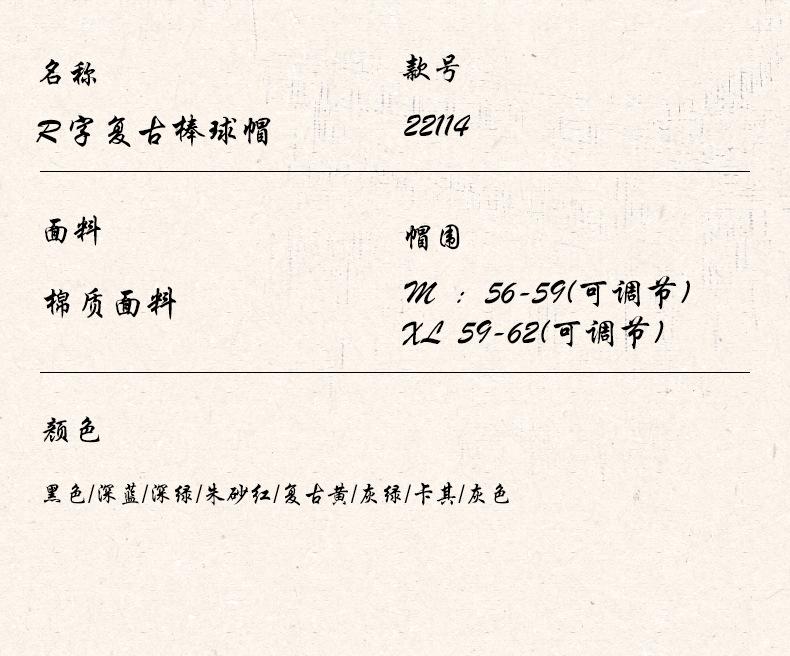 名称
款号
R字复古棒球帽
22114
面料
帽围
棉质面料
M : 56-59(可调节)
XL 59-62(可调节)
颜色
黑色/深蓝/深绿/朱砂红/复古黄/灰绿/卡其/灰色